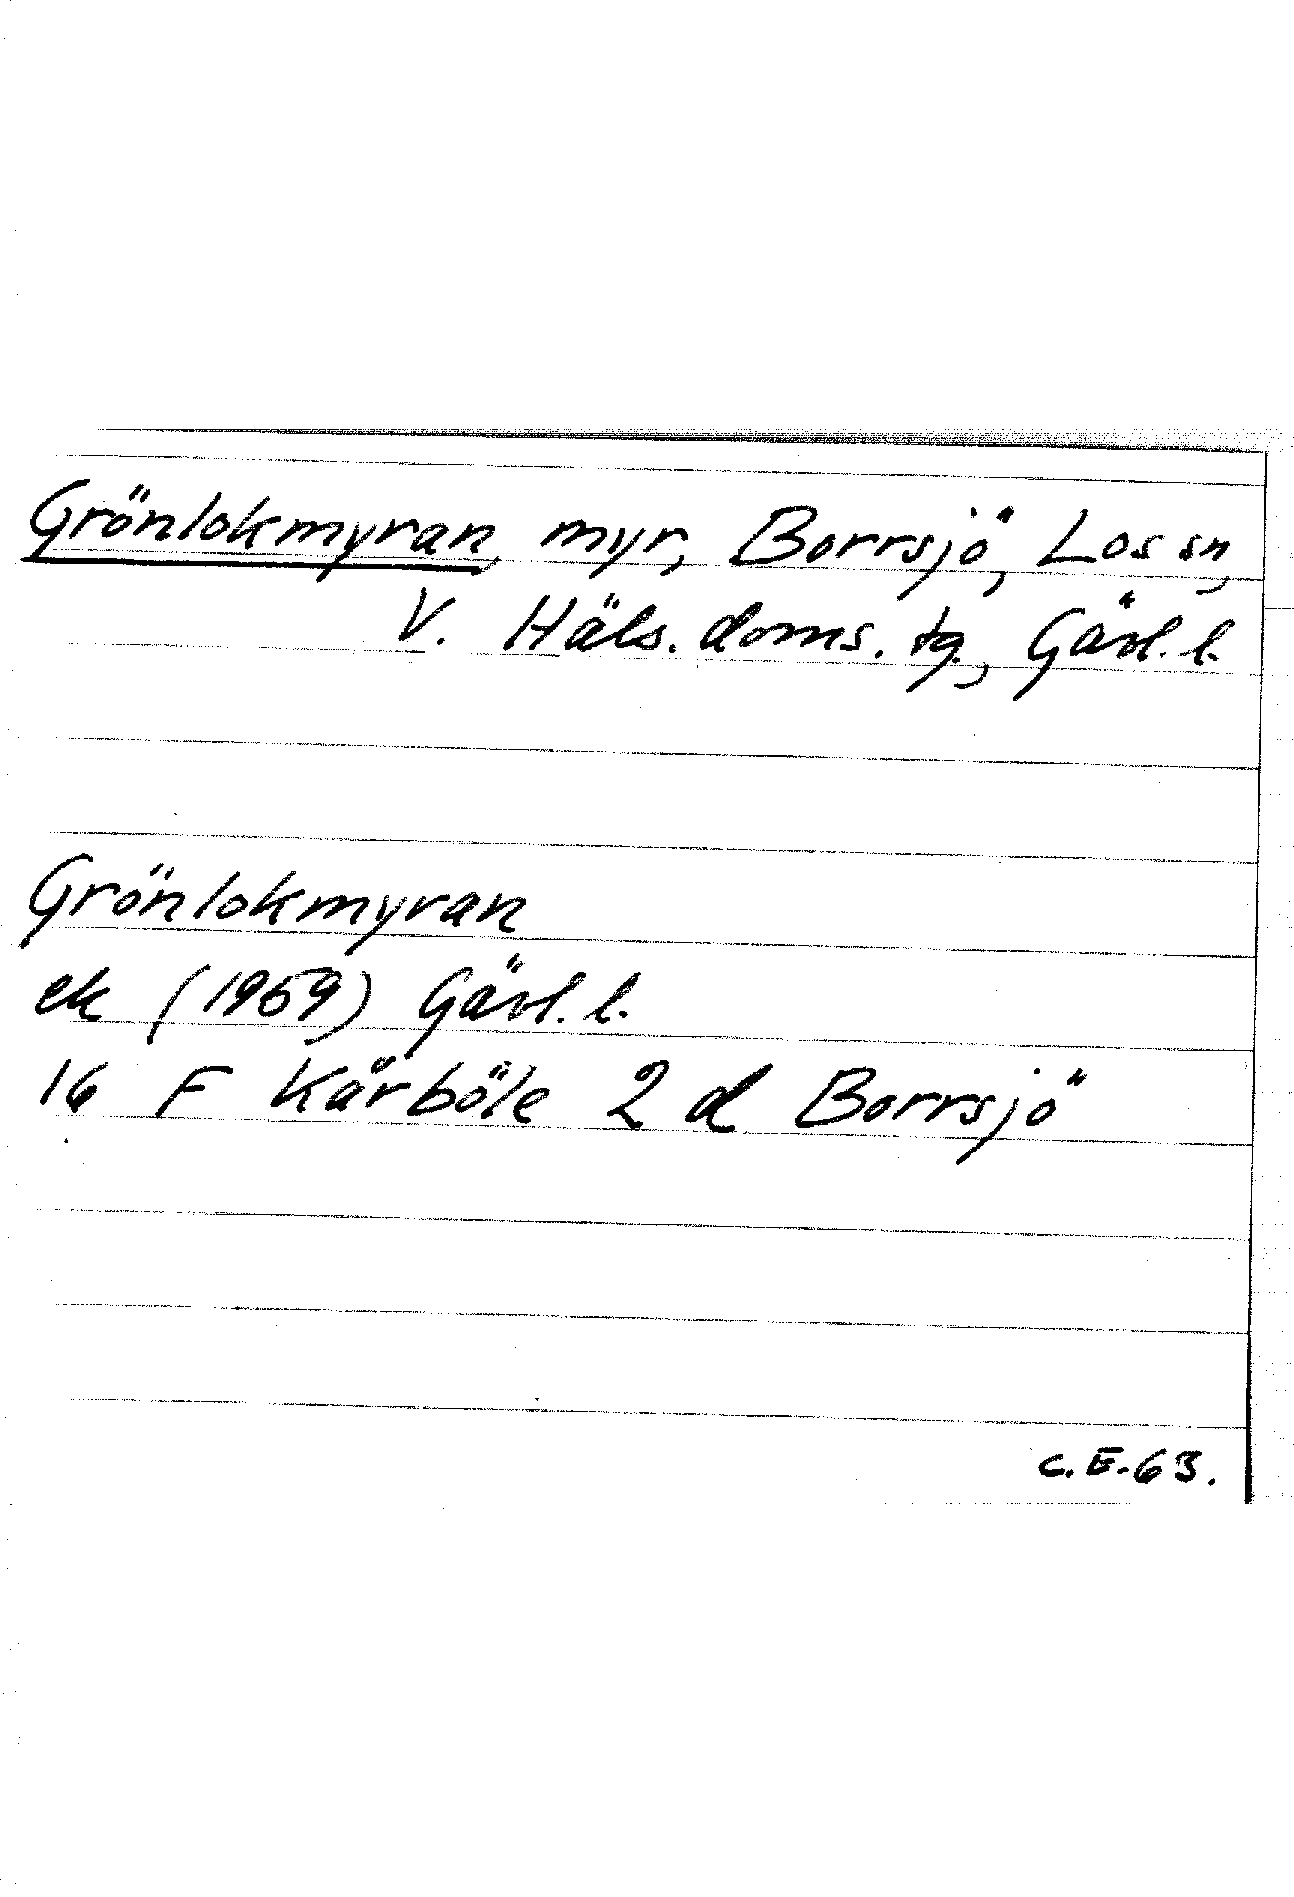 Grönlokmyran, myr, Borrsjö, Los sn,
V. Häls. doms. tg., Gävl. l.
Grönlokmyran
ek (1959) Gävl. l.
16 F Kårböle 2 d Borrsjö
C. E. 63.